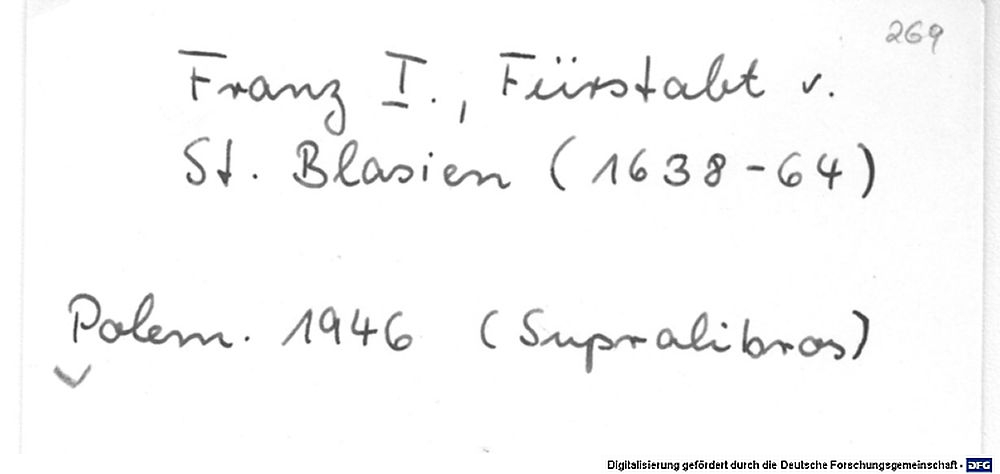 269
Franz I., Fürstabt v.
St. Blasien (1638-64)
Polem. 1946 (Supralibros)
Digitalisierung gefördert durch die Deutsche Forschungsgemeinschaft - DFG